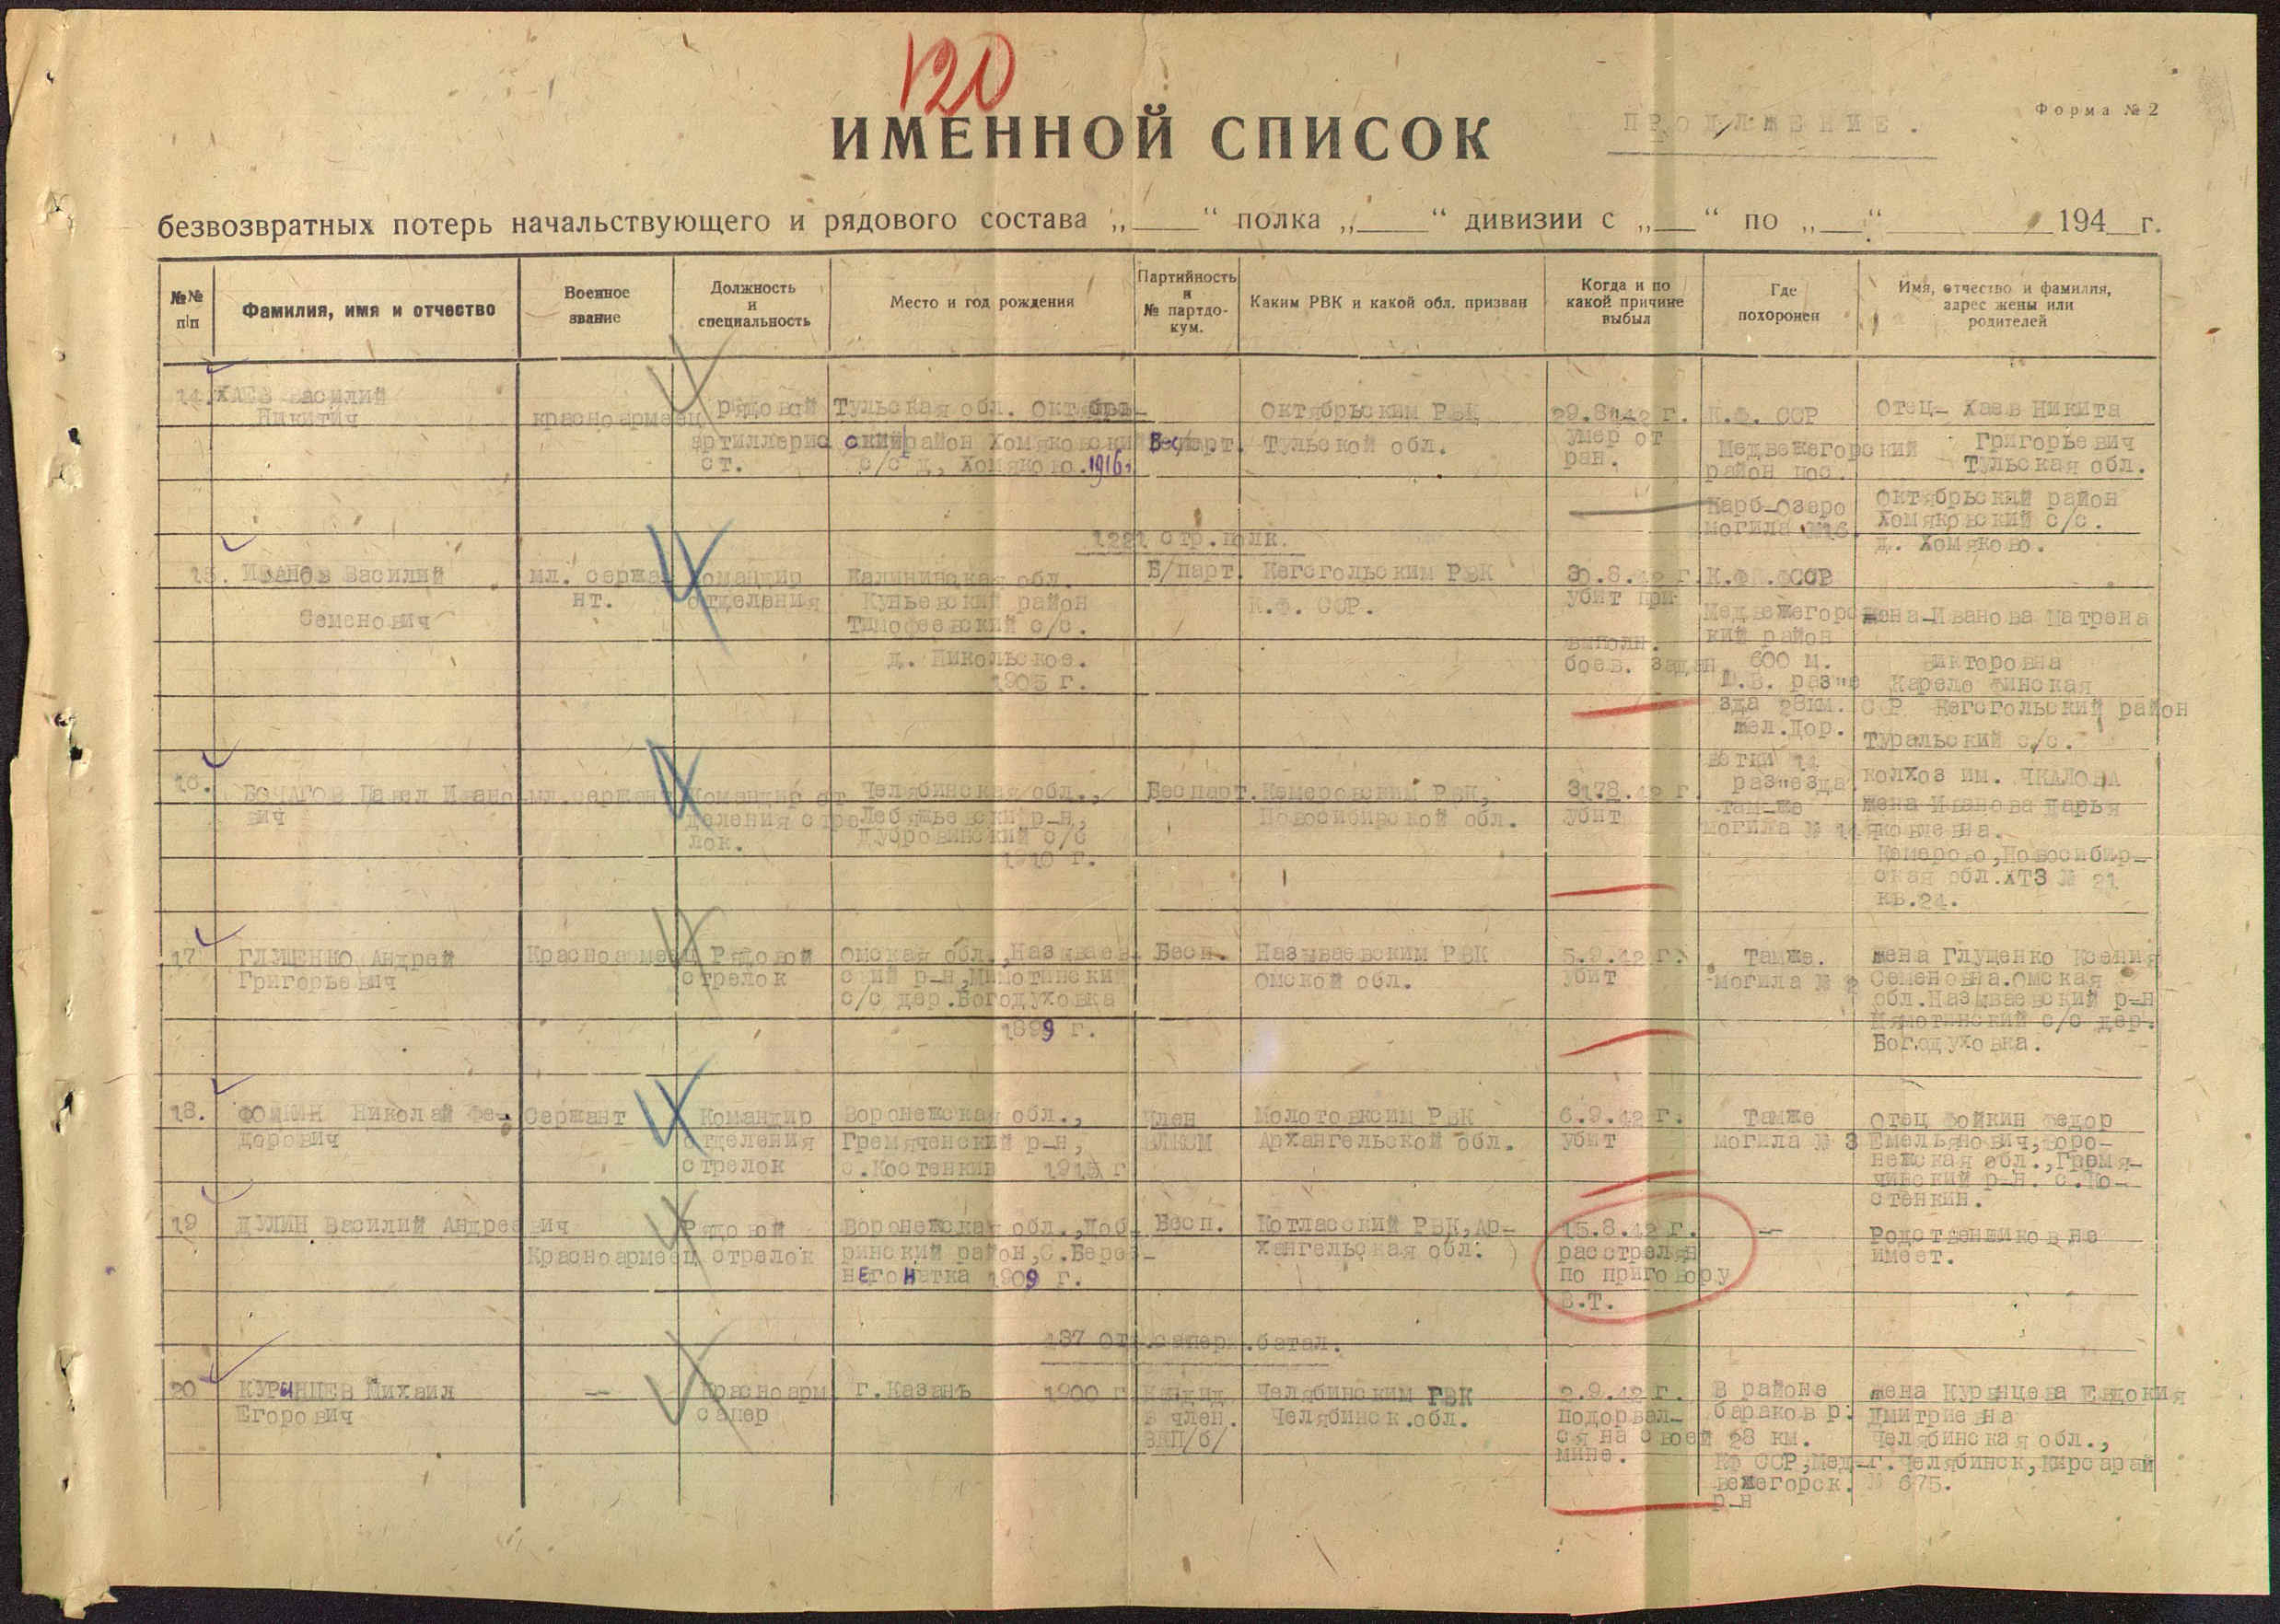 120
Форма № 2
ПРОДЛЖЕНИЕ.
ИМЕННОЙ СПИСОК
безвозвратных потерь начальствующего и рядового состава „____“ полка „____“ дивизии с „___“ по „___“ 194__г.
№№ п/п
Фамилия, имя и отчество
Военное звание
Должность и специальность
Место и год рождения
Партийность и № партдо-кум.
Каким РВК и какой обл. призван
Когда и по какой причине выбыл
Где похоронен
Имя, отчество и фамилия, адрес жены или родителей
14. ХАЕВ Василий
Никитич
красноармеец
рядовой
артиллерис
ст.
Тульская обл. Октябрь-
ский район Хомяковский
с/с д. Хомяково. 1916г
Бесп арт.
Октябрьским РВК
Тульской обл.
29.8.42 г.
умер от
ран.
К.Ф. ССР
Медвежегорский
район пос.
Карб-Озеро
могила №16
Отец- Хаев Никита
Григорьевич
Тульская обл.
Октябрьский район
Хомяковский с/с.
д. Хомяково.
1221 стр.полк.
15. ИВАНОВ Василий
Семенович
мл. сержа
нт.
Командир
отделения
Калининская обл.
Куньевский район
Тимофеевский с/с.
д. Никольское.
1905 г.
Б/парт.
Кегстольским РВК
К.Ф. ССР.
30.8.42 г.
убит при
выполн.
боев. задан.
К.Ф. ССР
Медвежегорс
кий район
600 м.
разъе
зда 28км.
жел.Дор.
ветки 14
разъезда
жена-Иванова Матрена
Викторовна
Карело Финская
ССР Кегстольский район
Туральский с/с.
колхоз им. ЧКАЛОВА
16. БОЧАГОВ Павел Ивано
вич
мл.сержант
Командир от
деления стре
лок.
Челябинская обл.,
Лебяжьевский р-н,
Дубровинский с/с
1910 г.
Беспарт.
Кемеровским РВК,
Новосибирской обл.
31.8.42 г.
убит
там-же
могила № 14
жена Иванова Дарья
Яковлевна.
Кемерово, Новосибир-
ская обл.ХТЗ № 21
кв.24.
17 ГЛУЩЕНКО Андрей
Григорьевич
Красноармеец
Рядовой
стрелок
Омская обл., Называев-
ский р-н,
с/с дер.Богодуховка
1899 г.
Бесп.
Называевским РВК
Омской обл.
5.9.42 г.
убит
Там же.
могила № 2
жена Глущенко Ксения
Семеновна.Омская
обл.Называевский р-н
с/с дер.
Богодуховка.
18. ФОЙКИН Николай Фе-
дорович
Сержант
Командир
отделения
стрелок
Воронежская обл.,
Гремяченский р-н,
с.Костенкив 1915 г
Член
ВЛКСМ
Молотовксим РВК
Архангельской обл.
6.9.42 г.
убит
Тамже
могила № 3
Отец Фойкин Федор
Емельянович, Воро-
нежская обл., Гремя-
чинский р-н. с.Ко-
стенкин.
19 ДУЛИН Василий Андреевич
Красноармеец
Рядовой
стрелок
Воронежская обл., Доб
ринский район, С.Берез-
неГоНатка 1909 г.
Бесп.
Котласский РВК, Ар-
хангельская обл.
15.8.42 г.
расстрелян
по приговору
В.Т.
—
Родственников не
имеет.
187 отд.сапер.батал.
20 КУРЯНЦЕВ Михаил
Егорович
—
Красноарм
сапер
г. Казань 1900 г
Кандид.
в член.
ВКП/б/
Челябинским ГВК
Челябинск.обл.
2.9.42 г.
подорвал-
ся на своей
мине.
В районе
бараков р.
28 км.
КФ ССР, Мед-
вежегорск.
р-н
жена Курянцева Евдокия
Дмитриевна
Челябинская обл.,
г. Челябинск, Кирсарай
№ 675.